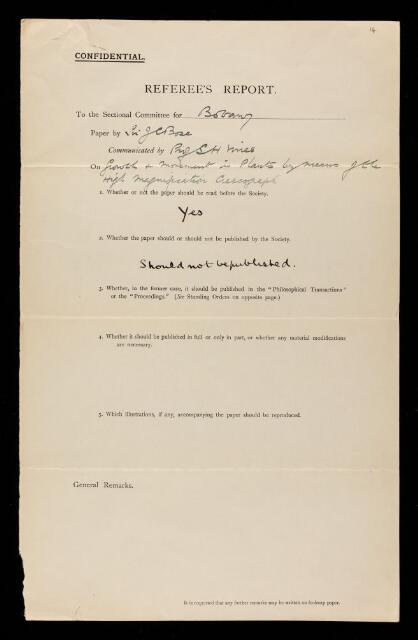 14
CONFIDENTIAL.
REFEREE'S REPORT.
To the Sectional Committee for Botany
Paper by Sir J C Bose
Communicated by Prof S H Vines
On Growth & Movement in Plants by means of the
High Magnification Crescograph
1. Whether or not the paper should be read before the Society.
Yes
2. Whether the paper should or should not be published by the Society.
Should not be published.
3. Whether, in the former case, it should be published in the "Philosophical Transactions"
or the "Proceedings." [See Standing Orders on opposite page.]
4. Whether it should be published in full or only in part, or whether any material modifications
are necessary.
5. Which illustrations, if any, accompanying the paper should be reproduced.
General Remarks.
It is requested that any further remarks may be written on foolscap paper.